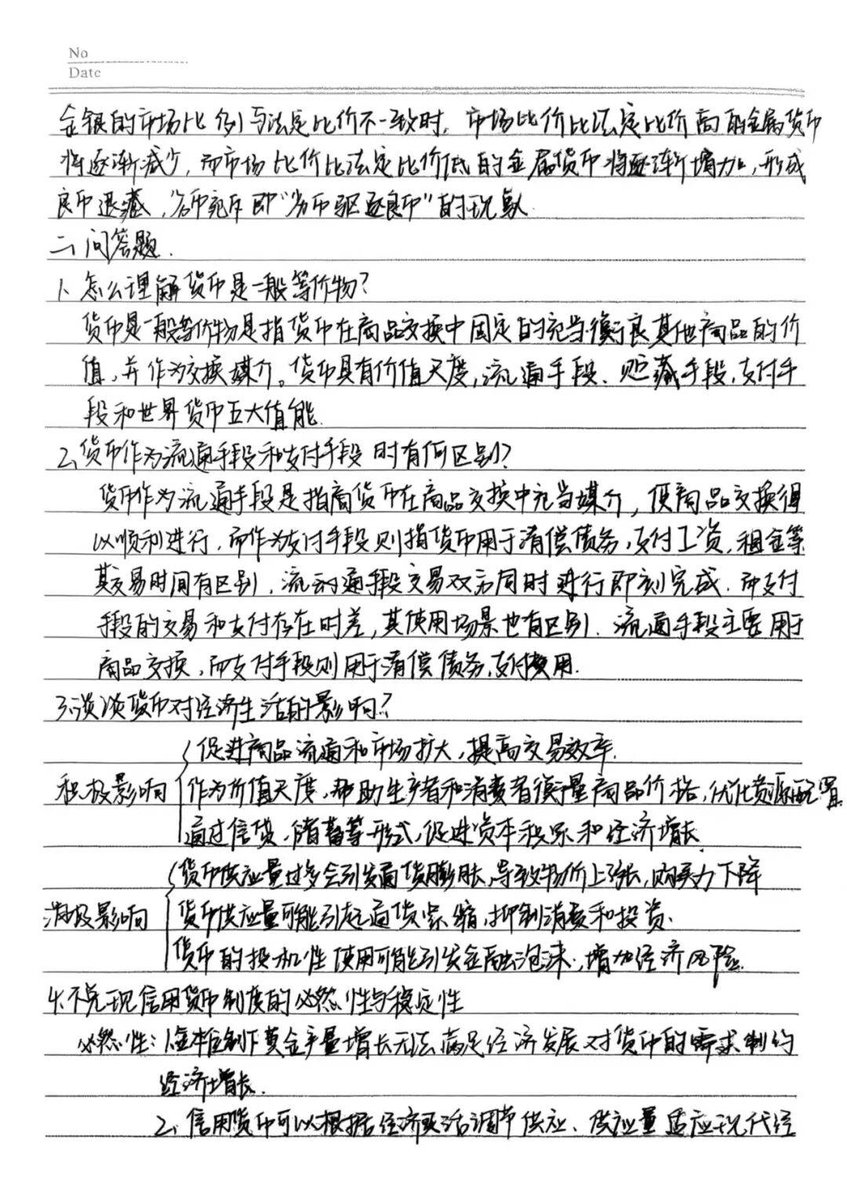 No
Date
金银的市场比例与法定比价不一致时，市场比价比法定比价高的金属货币
将逐渐减少，而市场比价比法定比价低的金属货币将逐渐增加，形成
良币退藏，劣币充斥即“劣币驱逐良币”的现象
二、问答题.
1、怎么理解货币是一般等价物？
货币是一般等价物是指货币在商品交换中固定的充当衡良其他商品的价
值，并作为交换媒介。货币具有价值尺度，流通手段、贮藏手段，支付手
段和世界货币五大值能.
2、货币作为流通手段和支付手段时有何区别？
货币作为流通手段是指商货币在商品交换中充当媒介，使商品交换得
以顺利进行，而作为支付手段则指货币用于清偿债务，支付工资，租金等
其交易时间有区别，流动通手段交易双方同时进行即刻完成. 而支付
手段的交易和支付存在时差，其使用场景也有区别. 流通手段主要用于
商品交换，而支付手段则用于清偿债务，支付费用.
3.谈谈货币对经济生活的影响？
促进商品流通和市场扩大，提高交易效率.
积极影响 作为价值尺度，帮助生产者和消费者衡量商品价格，优化资源配置
通过信贷，储蓄等形式，促进资本积累和经济增长
货币供应量过多会引发通货膨胀，导致物价上涨，购买力下降
消极影响 货币供应量可能引起通货紧缩，抑制消费和投资.
货币的投机性使用可能引发金融泡沫，增加经济风险.
4.不兑现信用货币制度的必然性与稳定性
必然性：1.金本位制下黄金产量增长无法满足经济发展对货币的需求制约
经济增长.
2、信用货币可以根据经济灵活调节供应、供应量适应现代经